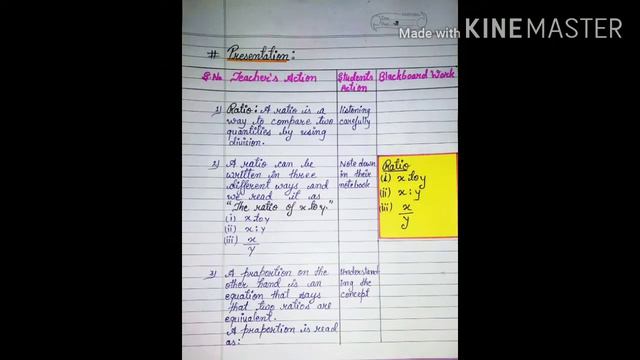 Made with KINEMASTER
# Presentation:
S.No. Teacher's Action Students Action Blackboard Work
1) Ratio: A ratio is a
way to compare two
quantities by using
division.
listening
carefully
2) A ratio can be
written in three
different ways and
we read it as
"The ratio of x to y."
(i) x to y
(ii) x : y
(iii) x/y
Note down
in their
notebook
Ratio
(i) x to y
(ii) x : y
(iii) x/y
3) A proportion on the
other hand is an
equation that says
that two ratios are
equivalent.
A proportion is read
as:
Understand
ing the
concept